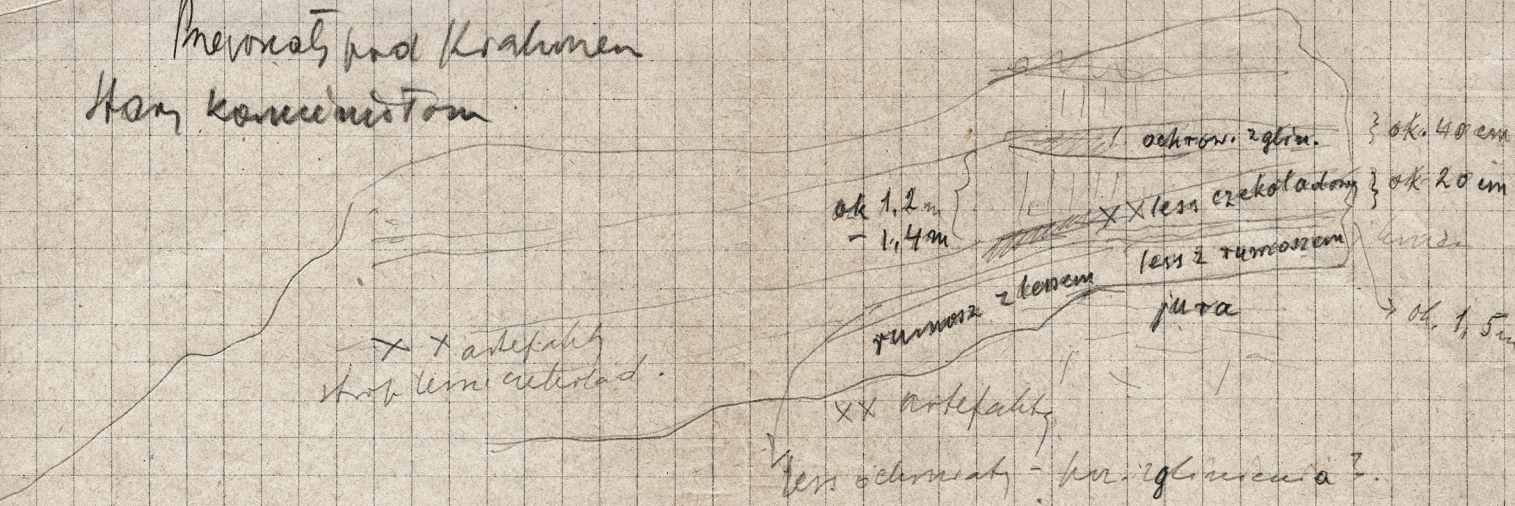 pod Krakowem
Stary kamieniołom
ochrow. zglin.
} ok. 40 cm
ok 1,2 m
- 1,4 m
XX less czekoladowy
} ok 20 cm
less z rumoszem
rumosz z lessem
jura
ok. 1,5 m
X X artefakty
strop lessu czekolad.
XX artefakty
less ochrowaty - poz. zglinienia?